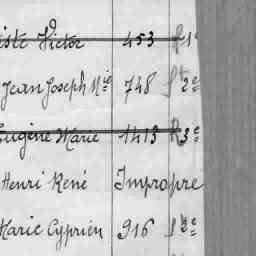 iste Victor 453 R 1e
Jean Joseph Mie 748 St 2e
Eugène Marie 1413 R 3e
Henri René Impropre
Marie Cyprien 916 St 3e